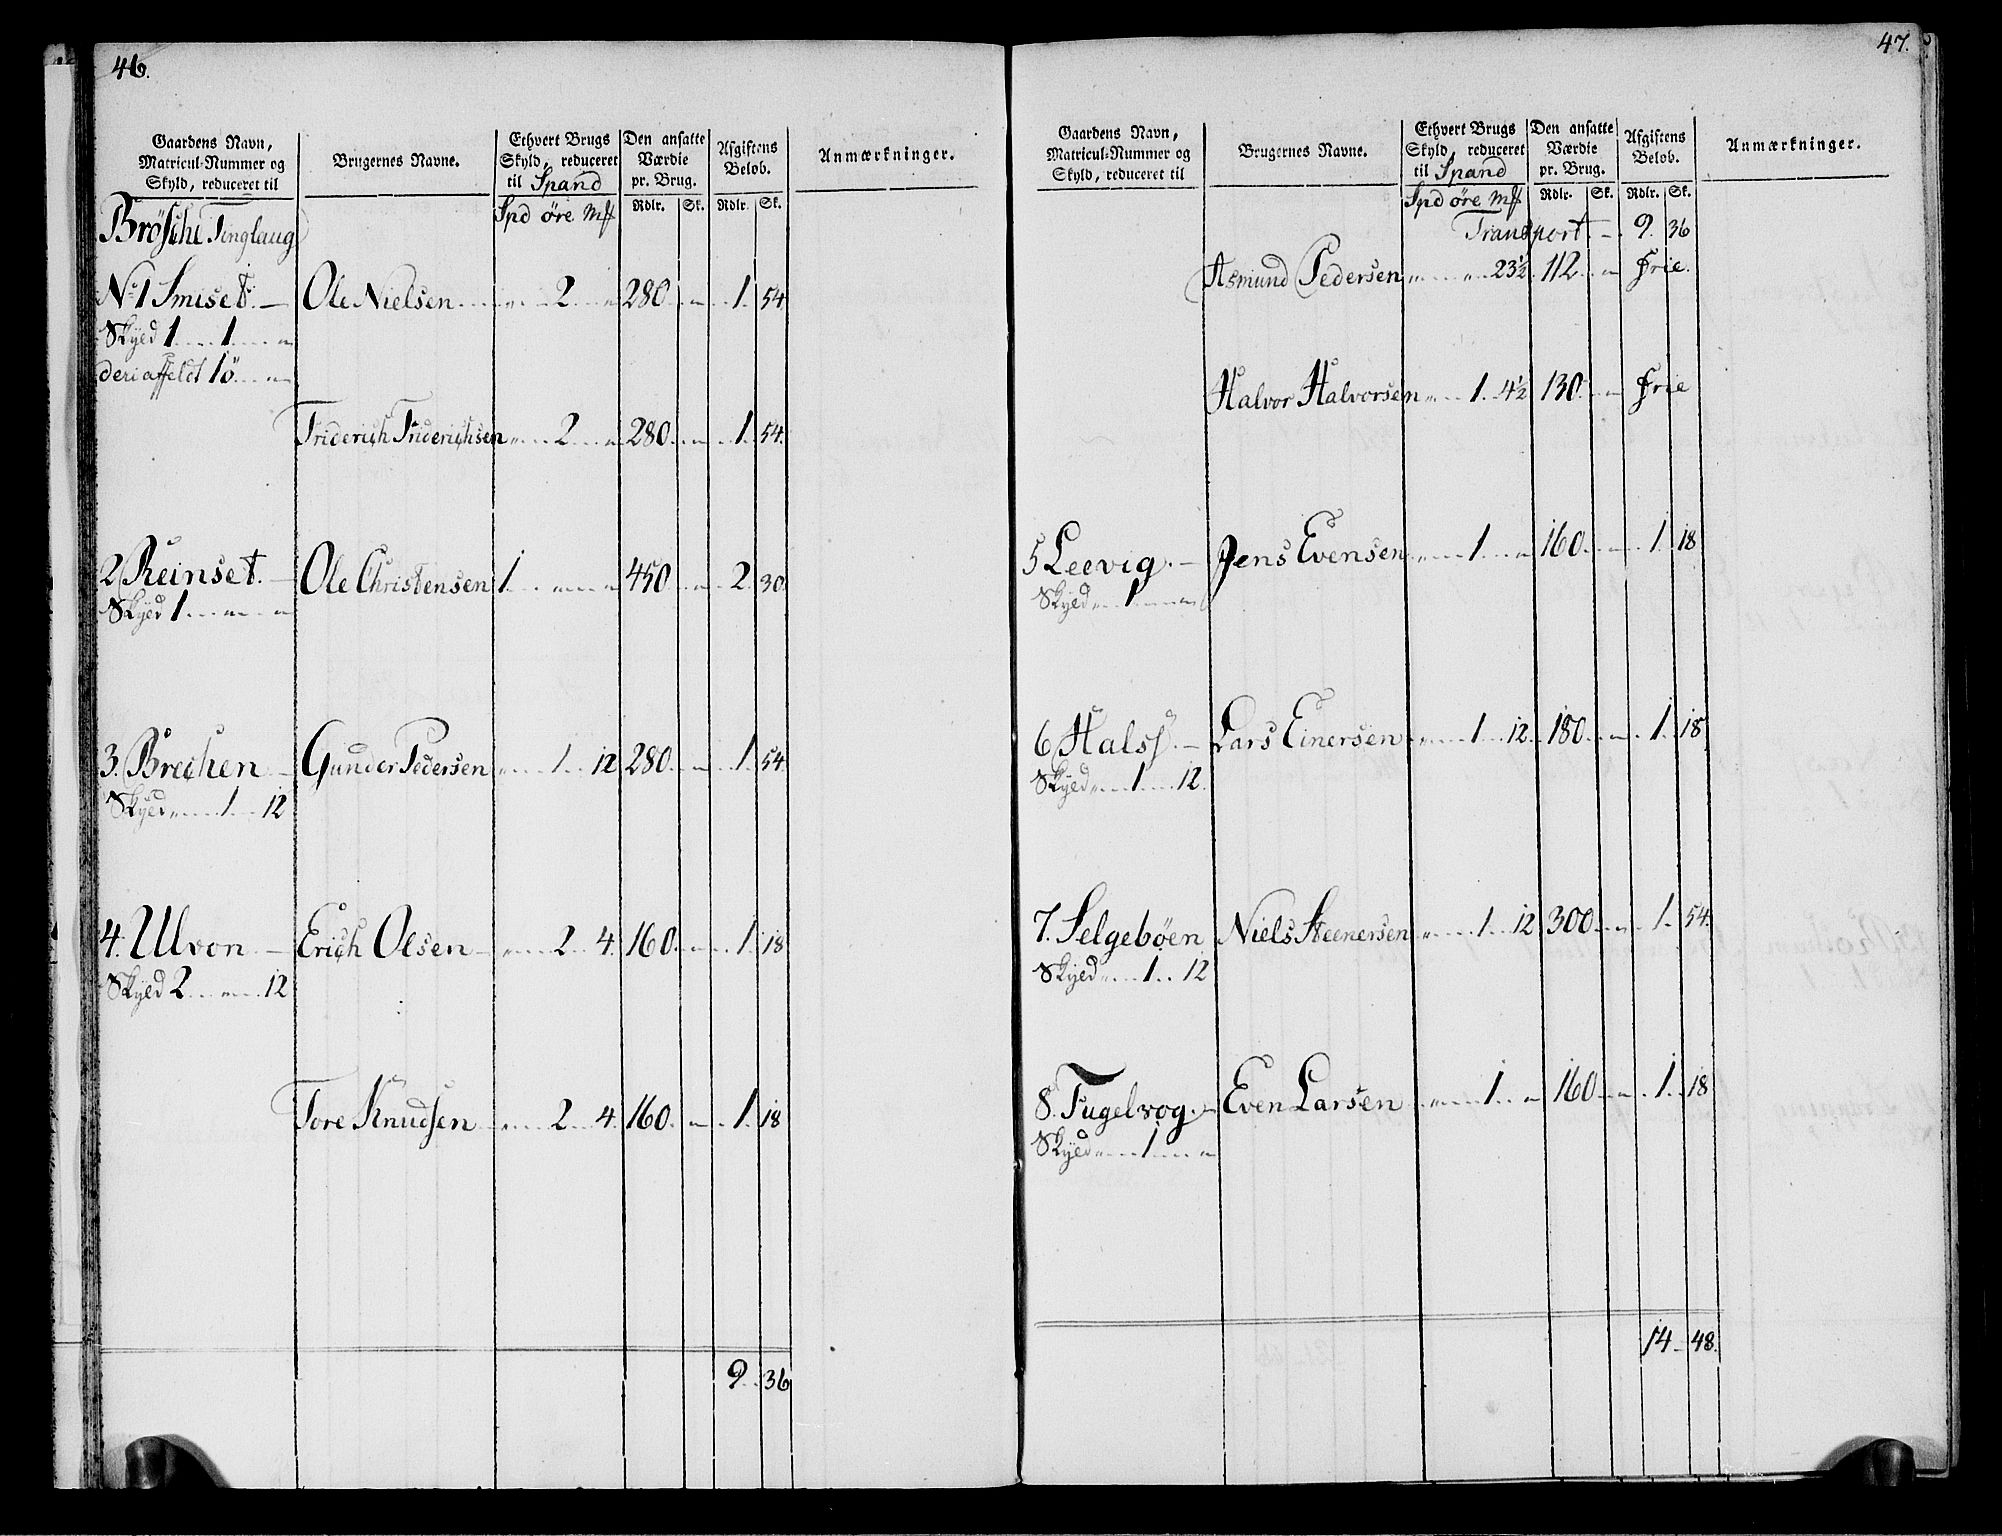 46.
Gaardens Navn, Matricul-Nummer og Skyld, reduceret til
Brugernes Navne.
Ethvert Brugs Skyld, reduceret til Spand
Den ansatte Værdie pr. Brug.
Afgiftens Belob.
Anmærkninger.
Spd öre Mk Rdlr. Sk. Rdlr. Sk.
Brösche Tinglaug
No 1 Smiset. — Ole Nielsen 2 280 1. 54.
Skyld 1 1
deriaffeldt 1ö
Friderich Friderichsen 2 280 1. 54.
2 Reinset. — Ole Christensen 1 450 2. 30.
Skyld 1
3. Brechen — Gunder Pedersen 1 12 280 1. 54.
Skyld 1 12
4. Ulvon — Erich Olsen — 2 4. 160 1. 18
Skyld 2 12
Tore Knudsen 2 4. 160 1. 18
9. 36
47.
Gaardens Navn, Matricul-Nummer og Skyld, reduceret til
Brugernes Navne.
Ethvert Brugs Skyld, reduceret til Spand
Den ansatte Værdie pr. Brug.
Afgiftens Belob.
Anmærkninger.
Spd öre Mk Rdlr. Sk. Rdlr. Sk.
Transport — 9. 36
Asmund Pedersen 23½ 112 frie.
Halvor Halvorsen 1. 4½ 130 frie
5 Leevig. — Jens Evensen 1 160 1. 18
Skyld 1
6 Halss. — Lars Einersen 1 12. 180 1. 18
Skyld 1 12.
7. Selgebøen Niels Steenersen 1 12 300 1. 54.
Skyld 1 12
8. Fugelvog. — Even Larsen 1 160 1. 18
Skyld 1
14 — 48.